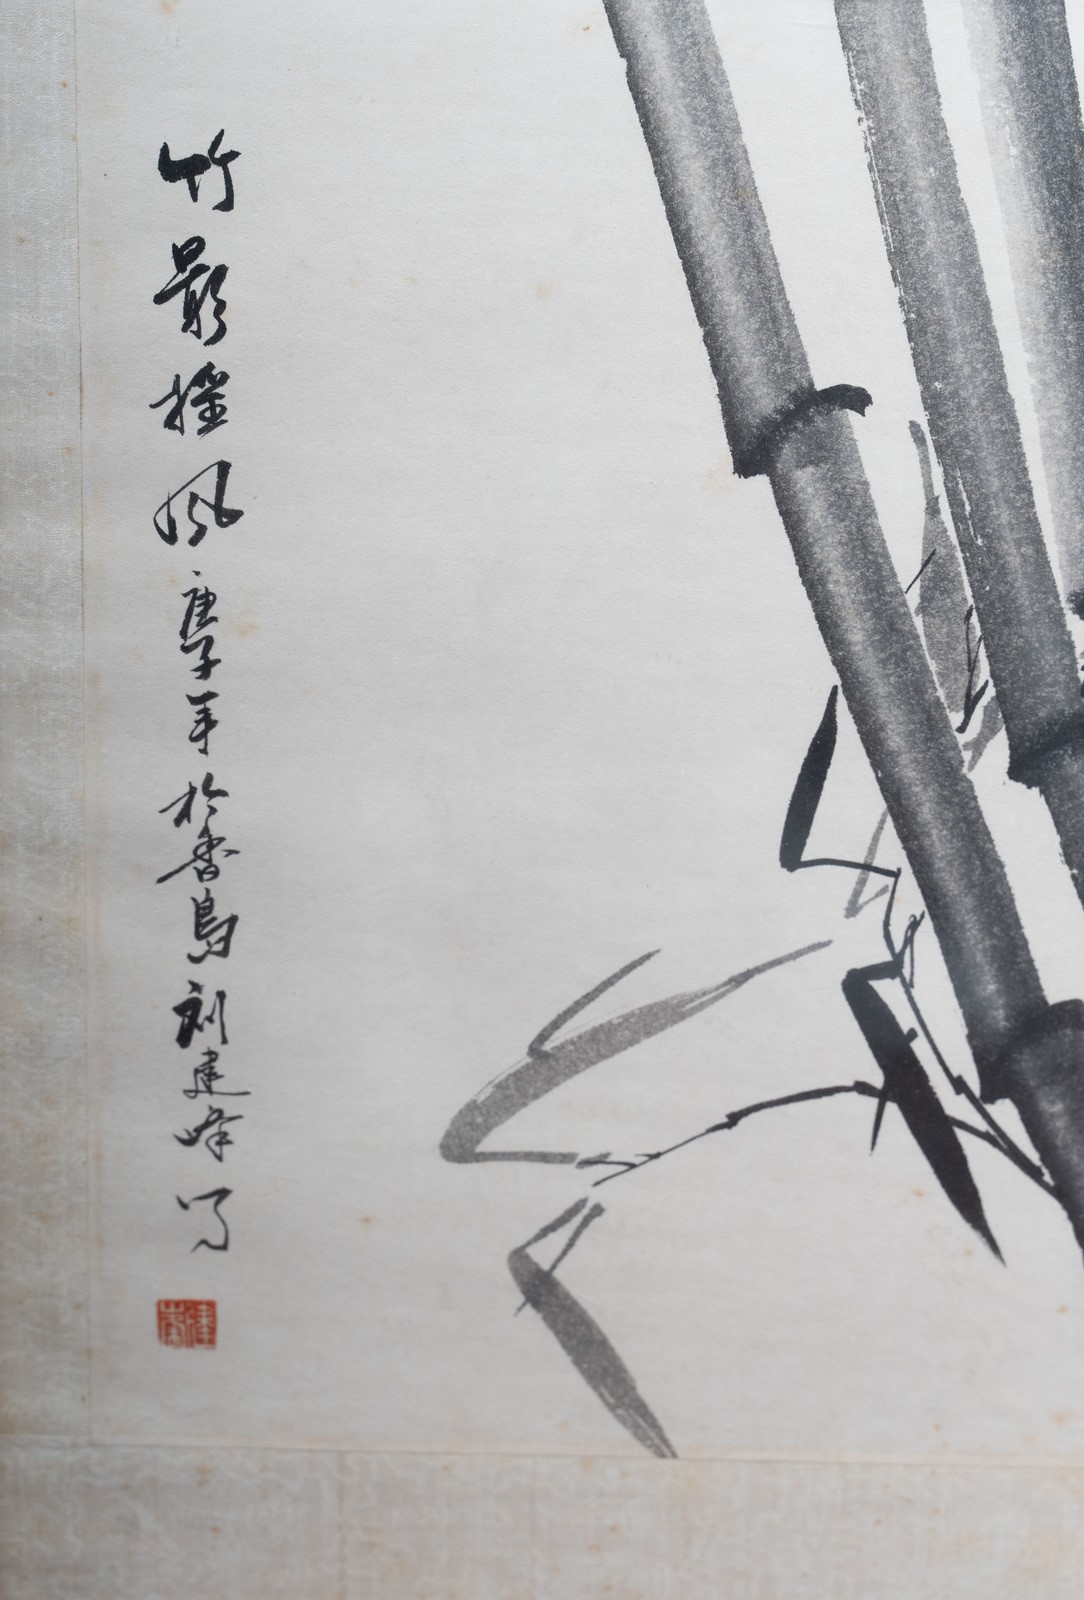 竹影摇风庚子年於香島刘建峰写
建峰